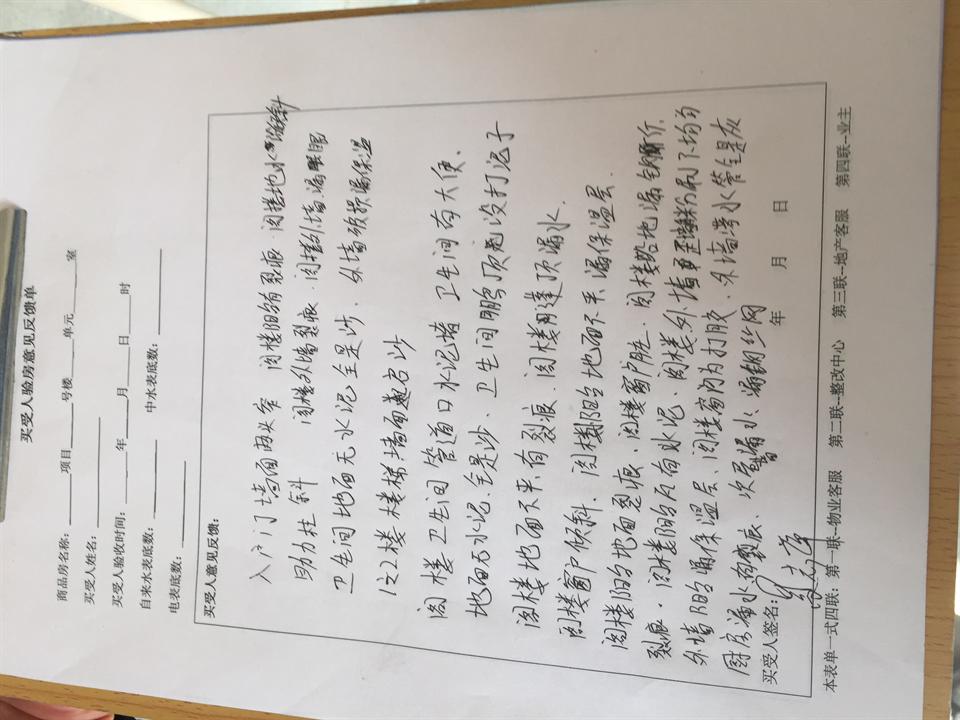 买受人验房意见反馈单
商品房名称：项目 号楼 单元 室
买受人姓名：
买受人验收时间： 年 月 日 时
自来水表底数： 中水表底数：
电表底数：
买受人意见反馈：
入户门墙面两头窄 阁楼阳台有裂痕．阁楼地水
助力柱斜 阁楼外墙裂痕．阁楼外墙漏
卫生间地面无水泥全是沙．外墙破损漏保温
1之2楼楼梯墙面起沙
阁楼卫生间管道口水泥堵 卫生间有大便．
地面无水泥．全是沙、卫生间顶没打泥子
阁楼地面不平．有裂痕、阁楼顶漏水．
阁楼窗户倾斜．阁楼阳台地面不平．漏保温层．
阁楼阳台地面裂痕、阁楼窗户脏．阁楼地漏
裂痕．阁楼阳台瓦有水泥、阁楼外墙粉刷不均匀
外墙阳台漏保温层、阁楼窗内为打胶．外墙滞水管全是灰
厨房漏水裂痕、次卧漏水、漏钢丝网
买受人签名： 年 月 日
本表单一式四联：第一联--物业客服 第二联--整改中心 第三联--地产客服 第四联--业主